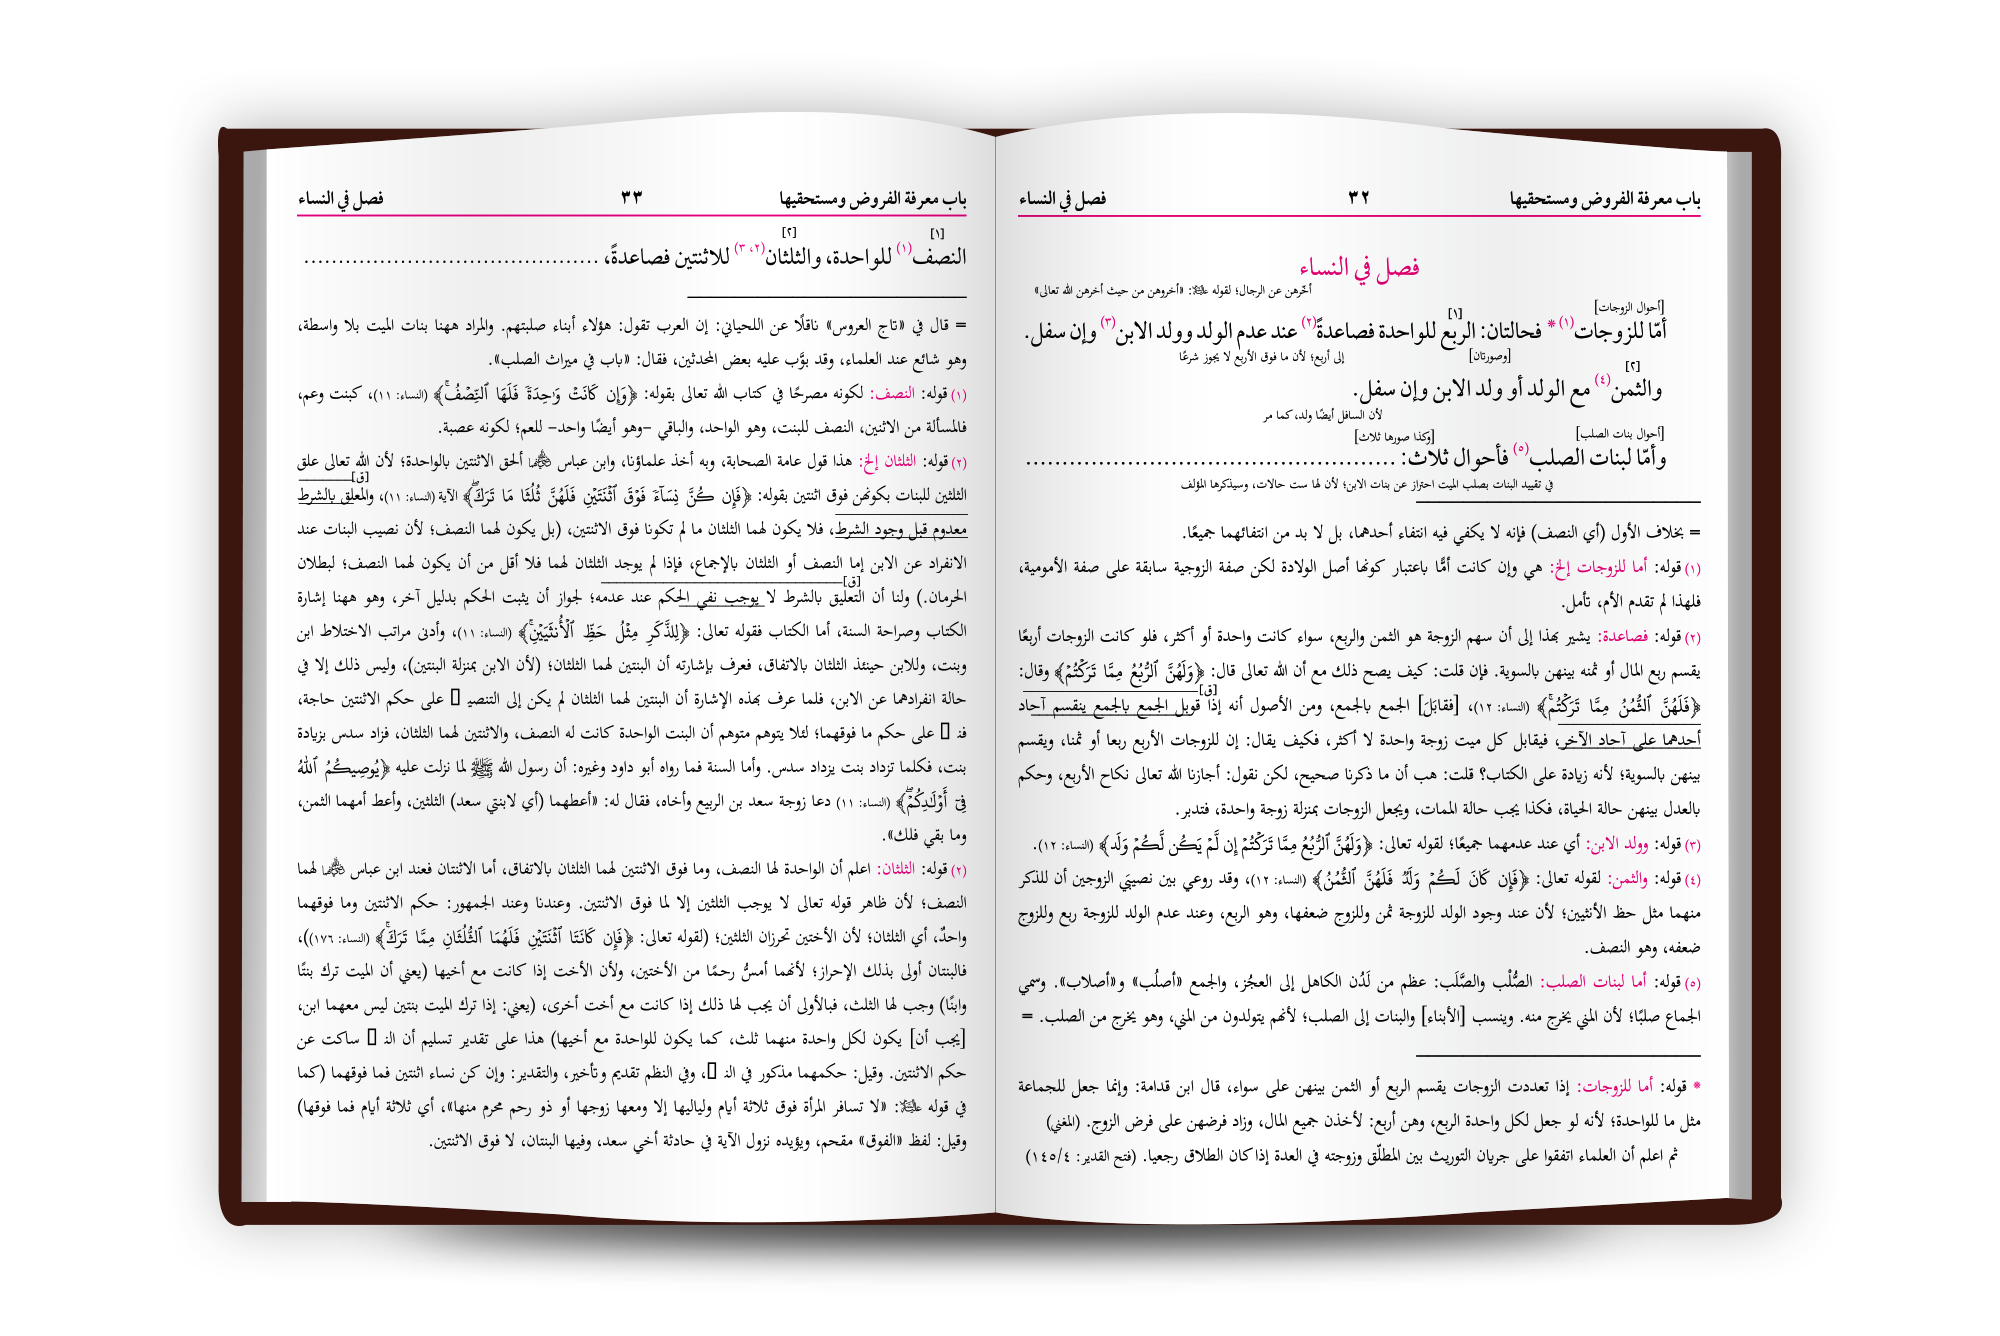 باب معرفة الفروض ومستحقيها ٣٢ فصل في النساء
فصل في النساء
أخّرهن عن الرجال؛ لقوله ﷺ: «أخروهن من حيث أخرهن الله تعالى»
[أحوال الزوجات]
[١]
أمّا للزوجات(١)* فحالتان: الربع للواحدة فصاعدةً(٢) عند عدم الولد وولد الابن(٣) وإن سفل.
[وصورتان] إلى أربع؛ لأن ما فوق الأربع لا يجوز شرعًا
[٢]
والثمن(٤) مع الولد أو ولد الابن وإن سفل.
لأن السافل أيضًا ولد، كما مر
[أحوال بنات الصلب] [وكذا صورها ثلاث]
وأمّا لبنات الصلب(٥) فأحوال ثلاث: ......................................................
في تقييد البنات بصلب الميت احتراز عن بنات الابن؛ لأن لها ست حالات، وسيذكرها المؤلف
= بخلاف الأول (أي النصف) فإنه لا يكفي فيه انتفاء أحدهما، بل لا بد من انتفائهما جميعًا.
(١) قوله: أما للزوجات إلخ: هي وإن كانت أمًّا باعتبار كونها أصل الولادة لكن صفة الزوجية سابقة على صفة الأمومية،
فلهذا لم تقدم الأم، تأمل.
(٢) قوله: فصاعدة: يشير بهذا إلى أن سهم الزوجة هو الثمن والربع، سواء كانت واحدة أو أكثر، فلو كانت الزوجات أربعًا
يقسم ربع المال أو ثمنه بينهن بالسوية. فإن قلت: كيف يصح ذلك مع أن الله تعالى قال: ﴿وَلَهُنَّ ٱلرُّبُعُ مِمَّا تَرَكْتُمْ﴾ وقال:
[ق]
﴿فَلَهُنَّ ٱلثُّمُنُ مِمَّا تَرَكْتُمۚ﴾ (النساء: ١٢)، [فقابَلَ] الجمع بالجمع، ومن الأصول أنه إذا قوبل الجمع بالجمع ينقسم آحاد
أحدهما على آحاد الآخر، فيقابل كل ميت زوجة واحدة لا أكثر، فكيف يقال: إن للزوجات الأربع ربعا أو ثمنا، ويقسم
بينهن بالسوية؛ لأنه زيادة على الكتاب؟ قلت: هب أن ما ذكرنا صحيح، لكن نقول: أجازنا الله تعالى نكاح الأربع، وحكم
بالعدل بينهن حالة الحياة، فكذا يجب حالة الممات، ويجعل الزوجات بمنزلة زوجة واحدة، فتدبر.
(٣) قوله: وولد الابن: أي عند عدمهما جميعًا؛ لقوله تعالى: ﴿وَلَهُنَّ ٱلرُّبُعُ مِمَّا تَرَكْتُمْ إِن لَّمْ يَكُن لَّكُمْ وَلَد﴾ (النساء: ١٢).
(٤) قوله: والثمن: لقوله تعالى: ﴿فَإِن كَانَ لَكُمْ وَلَدٌ فَلَهُنَّ ٱلثُّمُنُ﴾ (النساء: ١٢)، وقد روعي بين نصيبَي الزوجين أن للذكر
منهما مثل حظ الأنثيين؛ لأن عند وجود الولد للزوجة ثمن وللزوج ضعفها، وهو الربع، وعند عدم الولد للزوجة ربع وللزوج
ضعفه، وهو النصف.
(٥) قوله: أما لبنات الصلب: الصُّلْب والصَّلَب: عظم من لَدُن الكاهل إلى العجُز، والجمع «أصلُب» و«أصلاب». وسمي
الجماع صلبًا؛ لأن المني يخرج منه. وينسب [الأبناء] والبنات إلى الصلب؛ لأنهم يتولدون من المني، وهو يخرج من الصلب. =
* قوله: أما للزوجات: إذا تعددت الزوجات يقسم الربع أو الثمن بينهن على سواء، قال ابن قدامة: وإنما جعل للجماعة
مثل ما للواحدة؛ لأنه لو جعل لكل واحدة الربع، وهن أربع: لأخذن جميع المال، وزاد فرضهن على فرض الزوج. (المغني)
ثم اعلم أن العلماء اتفقوا على جريان التوريث بين المطلّق وزوجته في العدة إذا كان الطلاق رجعيا. (فتح القدير: ١٤٥/٤)
باب معرفة الفروض ومستحقيها ٣٣ فصل في النساء
[١] [٢]
النصف(١) للواحدة، والثلثان(٢، ٣) للاثنتين فصاعدةً، ..........................................
= قال في «تاج العروس» ناقلًا عن اللحياني: إن العرب تقول: هؤلاء أبناء صلبتهم. والمراد ههنا بنات الميت بلا واسطة،
وهو شائع عند العلماء، وقد بوَّب عليه بعض المحدثين، فقال: «باب في ميراث الصلب».
(١) قوله: النصف: لكونه مصرحًا في كتاب الله تعالى بقوله: ﴿وَإِن كَانَتْ وَٰحِدَةً فَلَهَا ٱلنِّصْفُۚ﴾ (النساء: ١١)، كبنت وعم،
فالمسألة من الاثنين، النصف للبنت، وهو الواحد، والباقي –وهو أيضًا واحد– للعم؛ لكونه عصبة.
(٢) قوله: الثلثان إلخ: هذا قول عامة الصحابة، وبه أخذ علماؤنا، وابن عباس رضي الله عنهما ألحق الاثنتين بالواحدة؛ لأن الله تعالى علق
[ق]
الثلثين للبنات بكونهن فوق اثنتين بقوله: ﴿فَإِن كُنَّ نِسَآءً فَوْقَ ٱثْنَتَيْنِ فَلَهُنَّ ثُلُثَا مَا تَرَكَۖ﴾ الآية (النساء: ١١)، والمعلق بالشرط
معدوم قبل وجود الشرط، فلا يكون لهما الثلثان ما لم تكونا فوق الاثنتين، (بل يكون لهما النصف؛ لأن نصيب البنات عند
الانفراد عن الابن إما النصف أو الثلثان بالإجماع، فإذا لم يوجد الثلثان لهما فلا أقل من أن يكون لهما النصف؛ لبطلان
[ق]
الحرمان.) ولنا أن التعليق بالشرط لا يوجب نفي الحكم عند عدمه؛ لجواز أن يثبت الحكم بدليل آخر، وهو ههنا إشارة
الكتاب وصراحة السنة، أما الكتاب فقوله تعالى: ﴿لِلذَّكَرِ مِثْلُ حَظِّ ٱلْأُنثَيَيْنِۚ﴾ (النساء: ١١)، وأدنى مراتب الاختلاط ابن
وبنت، وللابن حينئذ الثلثان بالاتفاق، فعرف بإشارته أن البنتين لهما الثلثان؛ (لأن الابن بمنزلة البنتين)، وليس ذلك إلا في
حالة انفرادهما عن الابن، فلما عرف بهذه الإشارة أن البنتين لهما الثلثان لم يكن إلى التنصيـ على حكم الاثنتين حاجة،
فنـ على حكم ما فوقهما؛ لئلا يتوهم متوهم أن البنت الواحدة كانت له النصف، والاثنتين لهما الثلثان، فزاد سدس بزيادة
بنت، فكلما تزداد بنت يزداد سدس. وأما السنة فما رواه أبو داود وغيره: أن رسول الله ﷺ لما نزلت عليه ﴿يُوصِيكُمُ ٱللَّهُ
فِيٓ أَوْلَٰدِكُمْۖ﴾ (النساء: ١١) دعا زوجة سعد بن الربيع وأخاه، فقال له: «أعطهما (أي لابنتي سعد) الثلثين، وأعط أمهما الثمن،
وما بقي فلك».
(٢) قوله: الثلثان: اعلم أن الواحدة لها النصف، وما فوق الاثنتين لهما الثلثان بالاتفاق، أما الاثنتان فعند ابن عباس رضي الله عنهما لهما
النصف؛ لأن ظاهر قوله تعالى لا يوجب الثلثين إلا لما فوق الاثنتين. وعندنا وعند الجمهور: حكم الاثنتين وما فوقهما
واحدٌ، أي الثلثان؛ لأن الأختين تحرزان الثلثين؛ (لقوله تعالى: ﴿فَإِن كَانَتَا ٱثْنَتَيْنِ فَلَهُمَا ٱلثُّلُثَانِ مِمَّا تَرَكَۚ﴾ (النساء: ١٧٦))،
فالبنتان أولى بذلك الإحراز؛ لأنهما أمسُّ رحمًا من الأختين، ولأن الأخت إذا كانت مع أخيها (يعني أن الميت ترك بنتًا
وابنًا) وجب لها الثلث، فبالأولى أن يجب لها ذلك إذا كانت مع أخت أخرى، (يعني: إذا ترك الميت بنتين ليس معهما ابن،
[يجب أن] يكون لكل واحدة منهما ثلث، كما يكون للواحدة مع أخيها) هذا على تقدير تسليم أن النـ ساكت عن
حكم الاثنتين. وقيل: حكمهما مذكور في النـ، وفي النظم تقديم وتأخير، والتقدير: وإن كن نساء اثنتين فما فوقهما (كما
في قوله ﷺ: «لا تسافر المرأة فوق ثلاثة أيام ولياليها إلا ومعها زوجها أو ذو رحم محرم منها»، أي ثلاثة أيام فما فوقها)
وقيل: لفظ «الفوق» مقحم، ويؤيده نزول الآية في حادثة أخي سعد، وفيها البنتان، لا فوق الاثنتين.